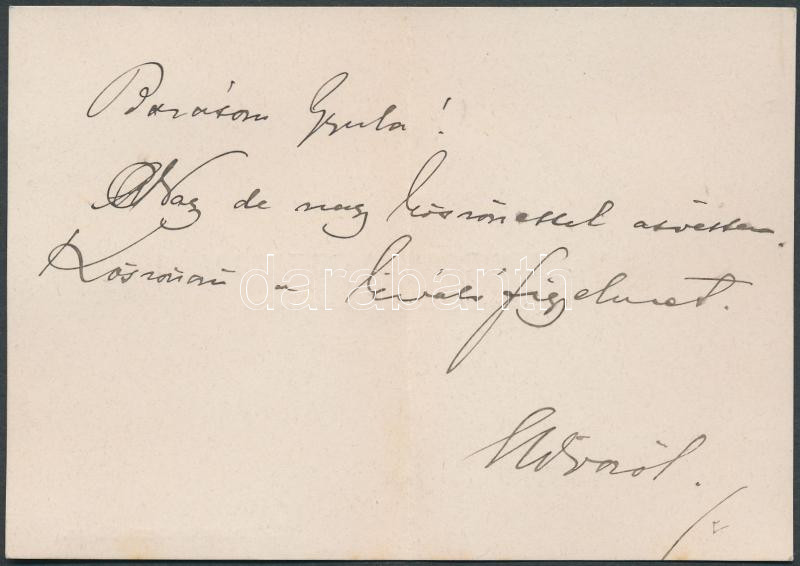 Barátom Gyula!
Nagy de nagy köszönettel átvettem.
Köszönöm a kiváló figyelmet.
darabanth